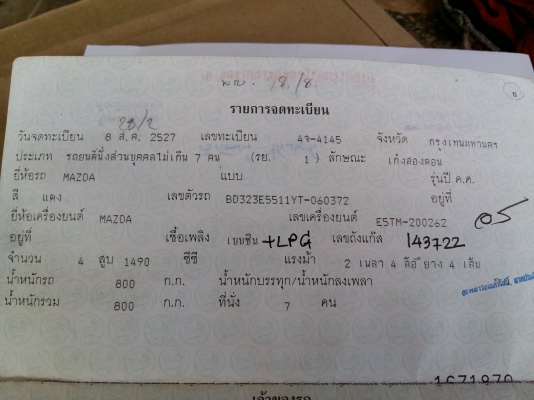 18/8
6
รายการจดทะเบียน
28/2
วันจดทะเบียน 8 ส.ค. 2527 เลขทะเบียน 4ว-4145 จังหวัด กรุงเทพมหานคร
ประเภท รถยนต์นั่งส่วนบุคคลไม่เกิน 7 คน (รย. 1) ลักษณะ เก๋งสองตอน
ยี่ห้อรถ MAZDA แบบ รุ่นปี ค.ศ.
สี แดง เลขตัวรถ BD323E5511YT-060372 อยู่ที่
ยี่ห้อเครื่องยนต์ MAZDA เลขเครื่องยนต์ E5TM-200262
อยู่ที่ เชื้อเพลิง เบนซิน +LPG เลขถังแก๊ส 143722
จำนวน 4 สูบ 1490 ซีซี แรงม้า 2 เพลา 4 ล้อ ยาง 4 เส้น
น้ำหนักรถ 800 ก.ก. น้ำหนักบรรทุก/น้ำหนักลงเพลา
น้ำหนักรวม 800 ก.ก. ที่นั่ง 7 คน
1671870
เจ้าของรถ